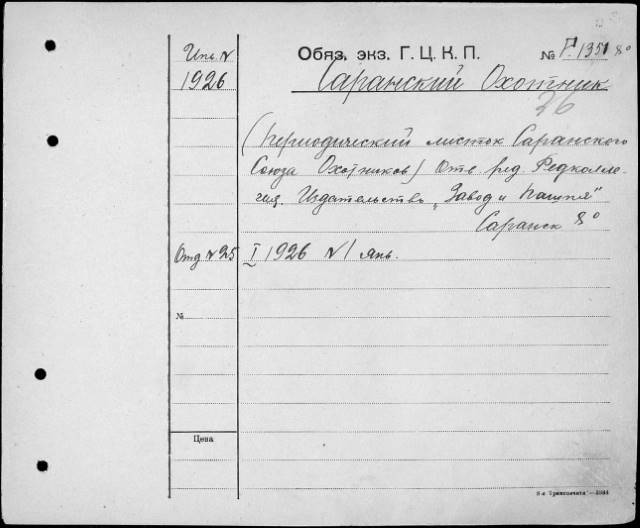 Инв. N
1926
Обяз. экз. Г. Ц. К. П. № 8°
Саранский Охотник
26
(Периодический листок Саранского
Союза Охотников) Отв. ред. Редколле-
гия. Издательство „Завод и Пашня"
Саранск 8°
Отд N 25 I 1926 N 1 янв.
№
Цена